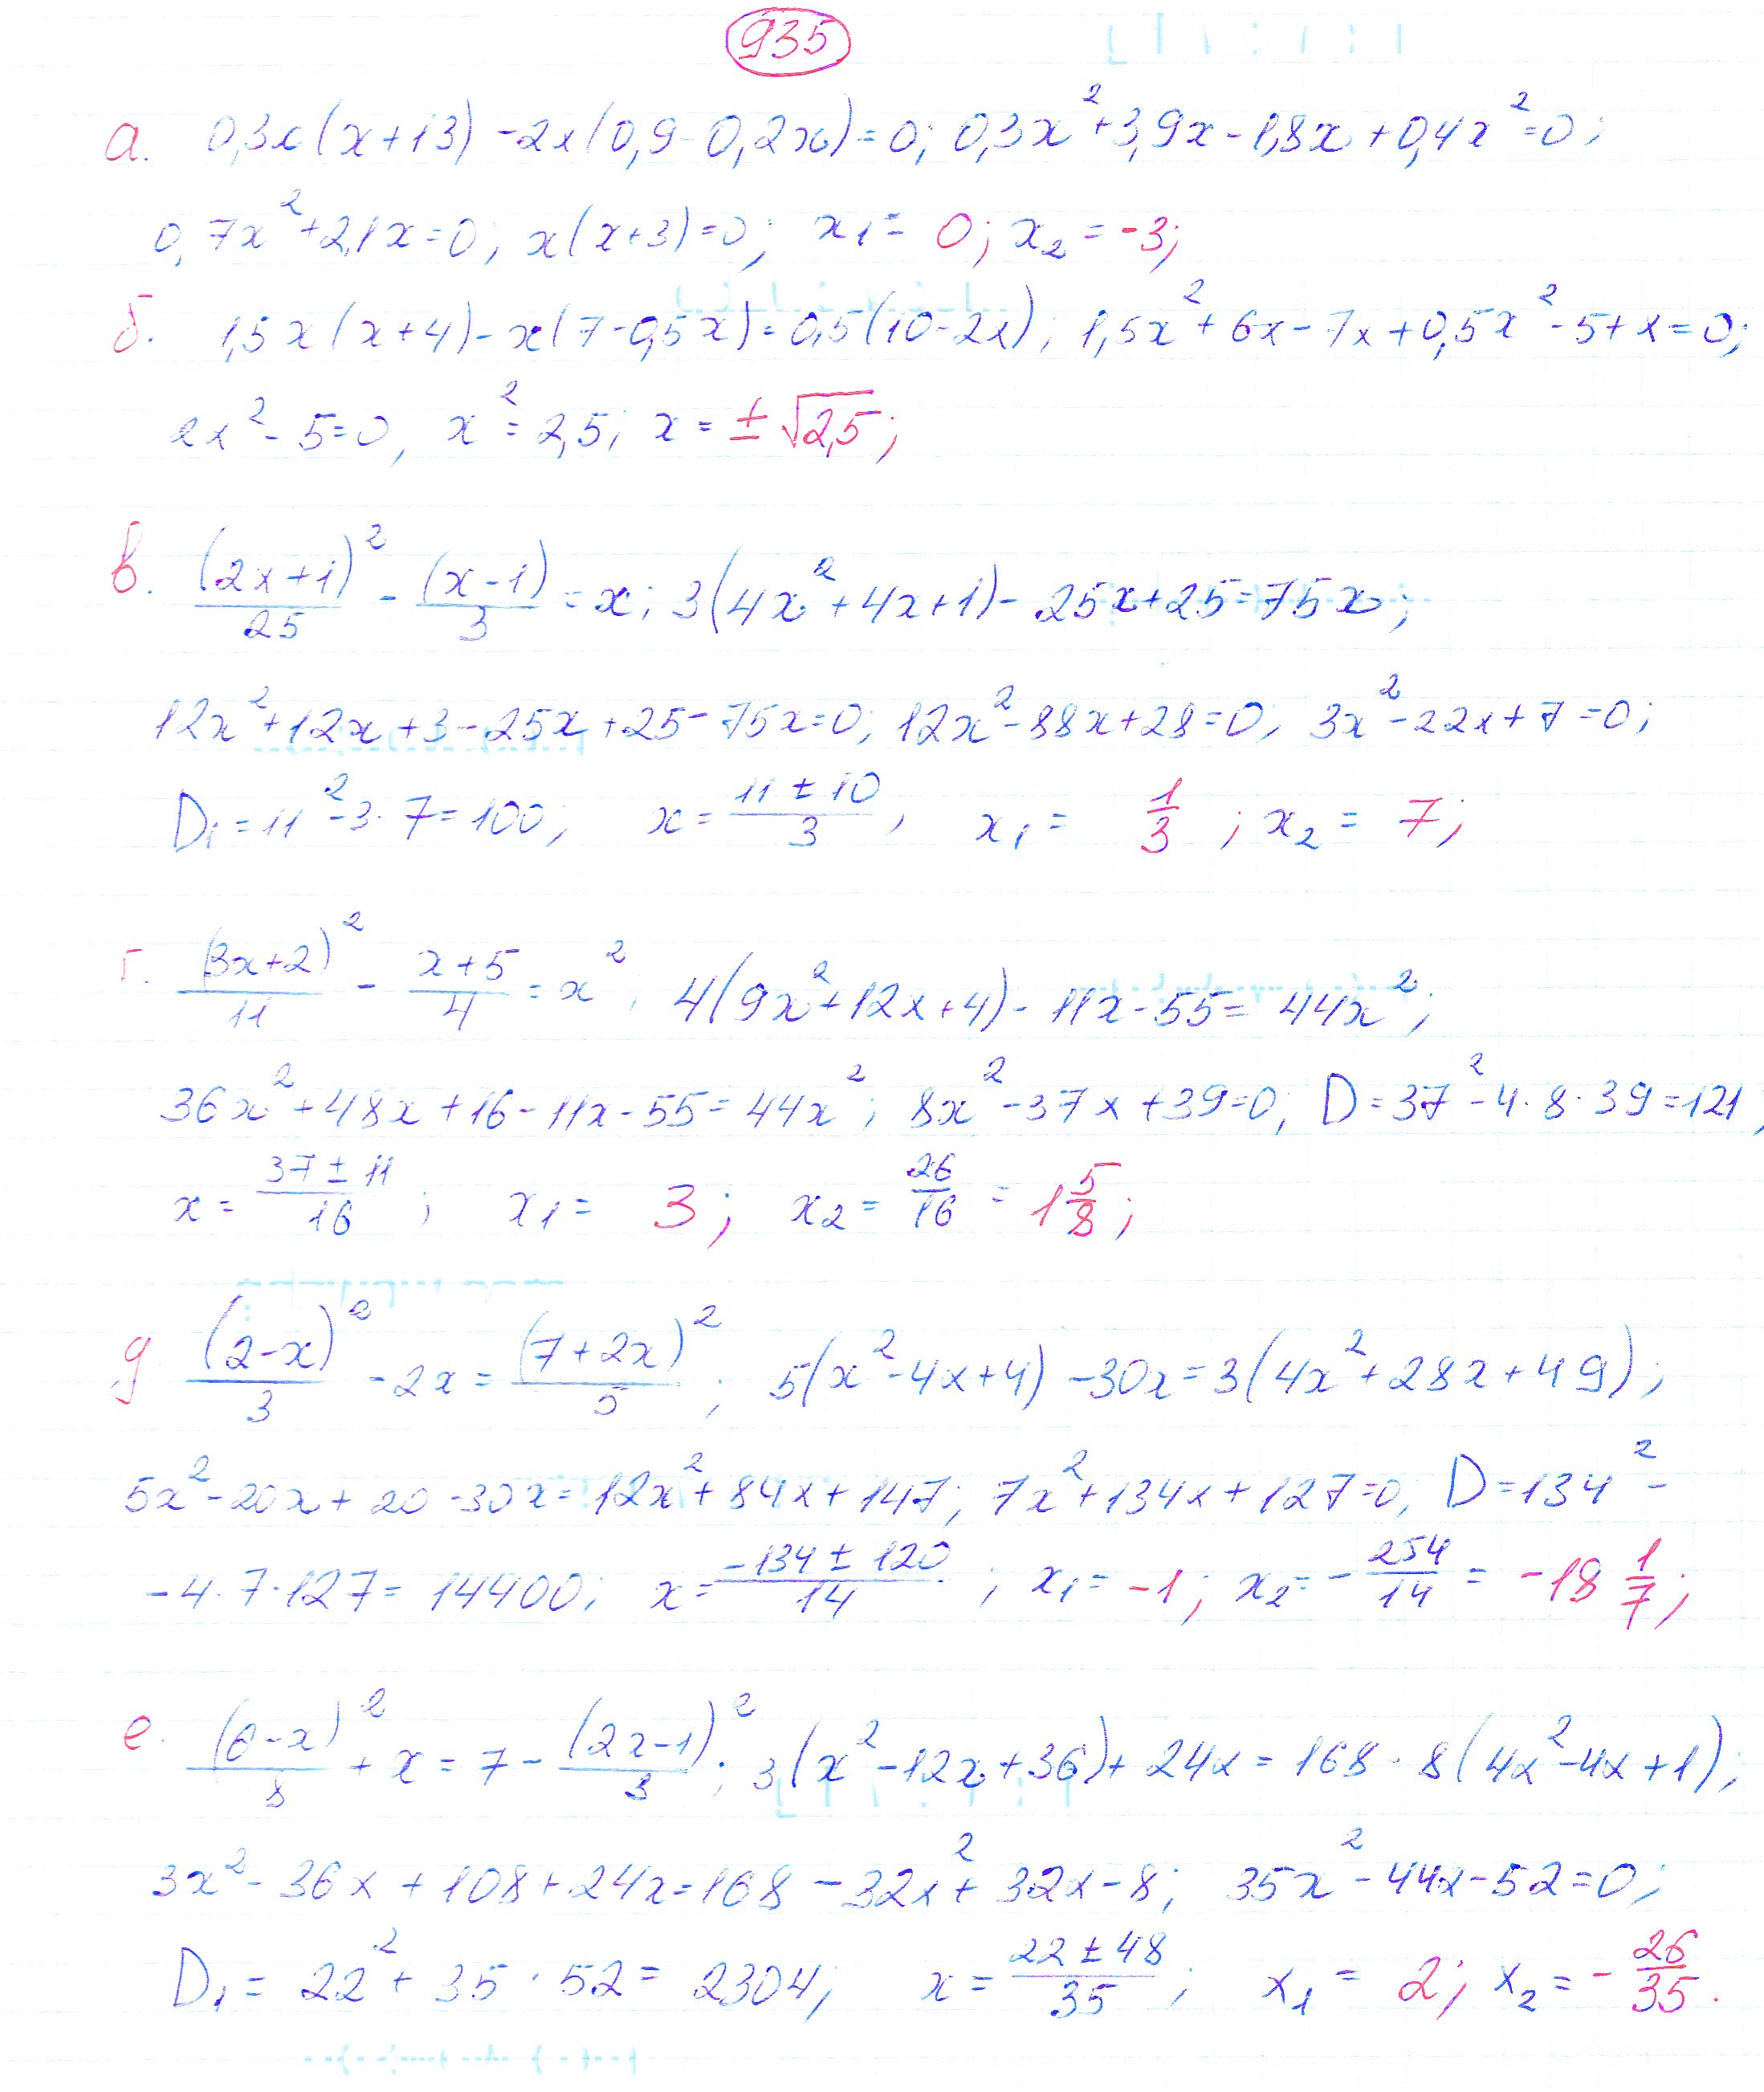 935
а. 0,3x(x+13) -2x(0,9-0,2x)=0; 0,3x²+3,9x-1,8x+0,4x²=0;
0,7x²+2,1x=0; x(x+3)=0; x₁= 0; x₂ = -3;
б. 1,5x(x+4)-x(7-0,5x)=0,5(10-2x); 1,5x²+6x-7x+0,5x²-5+x=0;
2x²-5=0, x²=2,5; x = ±√2,5;
в. (2x+1)²/25 - (x-1)/3 = x; 3(4x²+4x+1)-25x+25=75x;
12x²+12x+3-25x+25-75x=0; 12x²-88x+28=0; 3x²-22x+7=0;
D₁=11²-3·7=100; x= (11±10)/3; x₁= 1/3; x₂ = 7;
г. (3x+2)²/11 - (x+5)/4 = x²; 4(9x²+12x+4)-11x-55= 44x²;
36x²+48x+16-11x-55=44x²; 8x²-37x+39=0; D=37²-4·8·39=121;
x= (37±11)/16; x₁= 3; x₂= 26/16 = 1 5/8;
д (2-x)²/3 -2x= (7+2x)²/5; 5(x²-4x+4)-30x=3(4x²+28x+49);
5x²-20x+20-30x=12x²+84x+147; 7x²+134x+127=0; D=134²-
-4·7·127=14400; x= (-134±120)/14; x₁= -1; x₂= -254/14 = -18 1/7;
е. (6-x)²/8 + x = 7 - (2x-1)²/3; 3(x²-12x+36)+24x=168-8(4x²-4x+1);
3x²-36x+108+24x=168-32x²+32x-8; 35x²-44x-52=0;
D₁= 22²+35·52= 2304; x= (22±48)/35; x₁ = 2; x₂= -26/35.